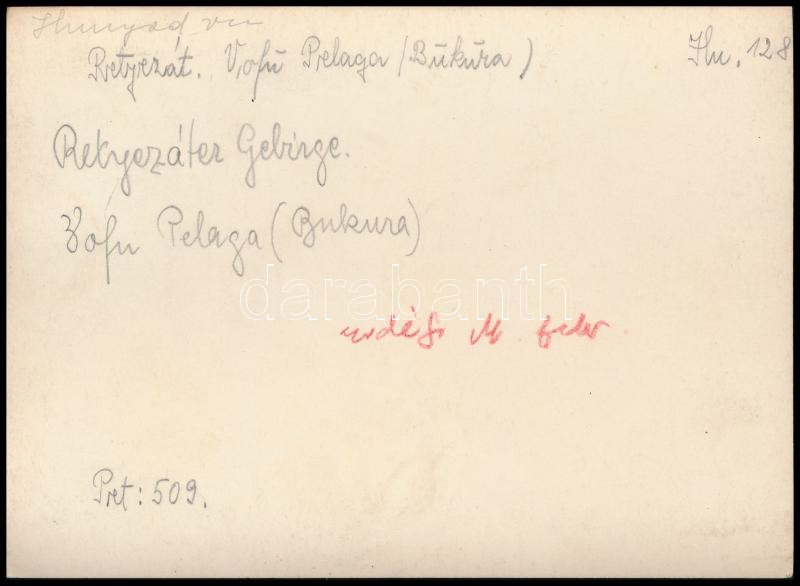 Hunyad vm
Retyezát. Vofu Pelaga (Bukura) Hu. 128
Retyezáter Gebirge.
Vofu Pelaga (Bukura)
darabanth
M. felv
Pret: 509.